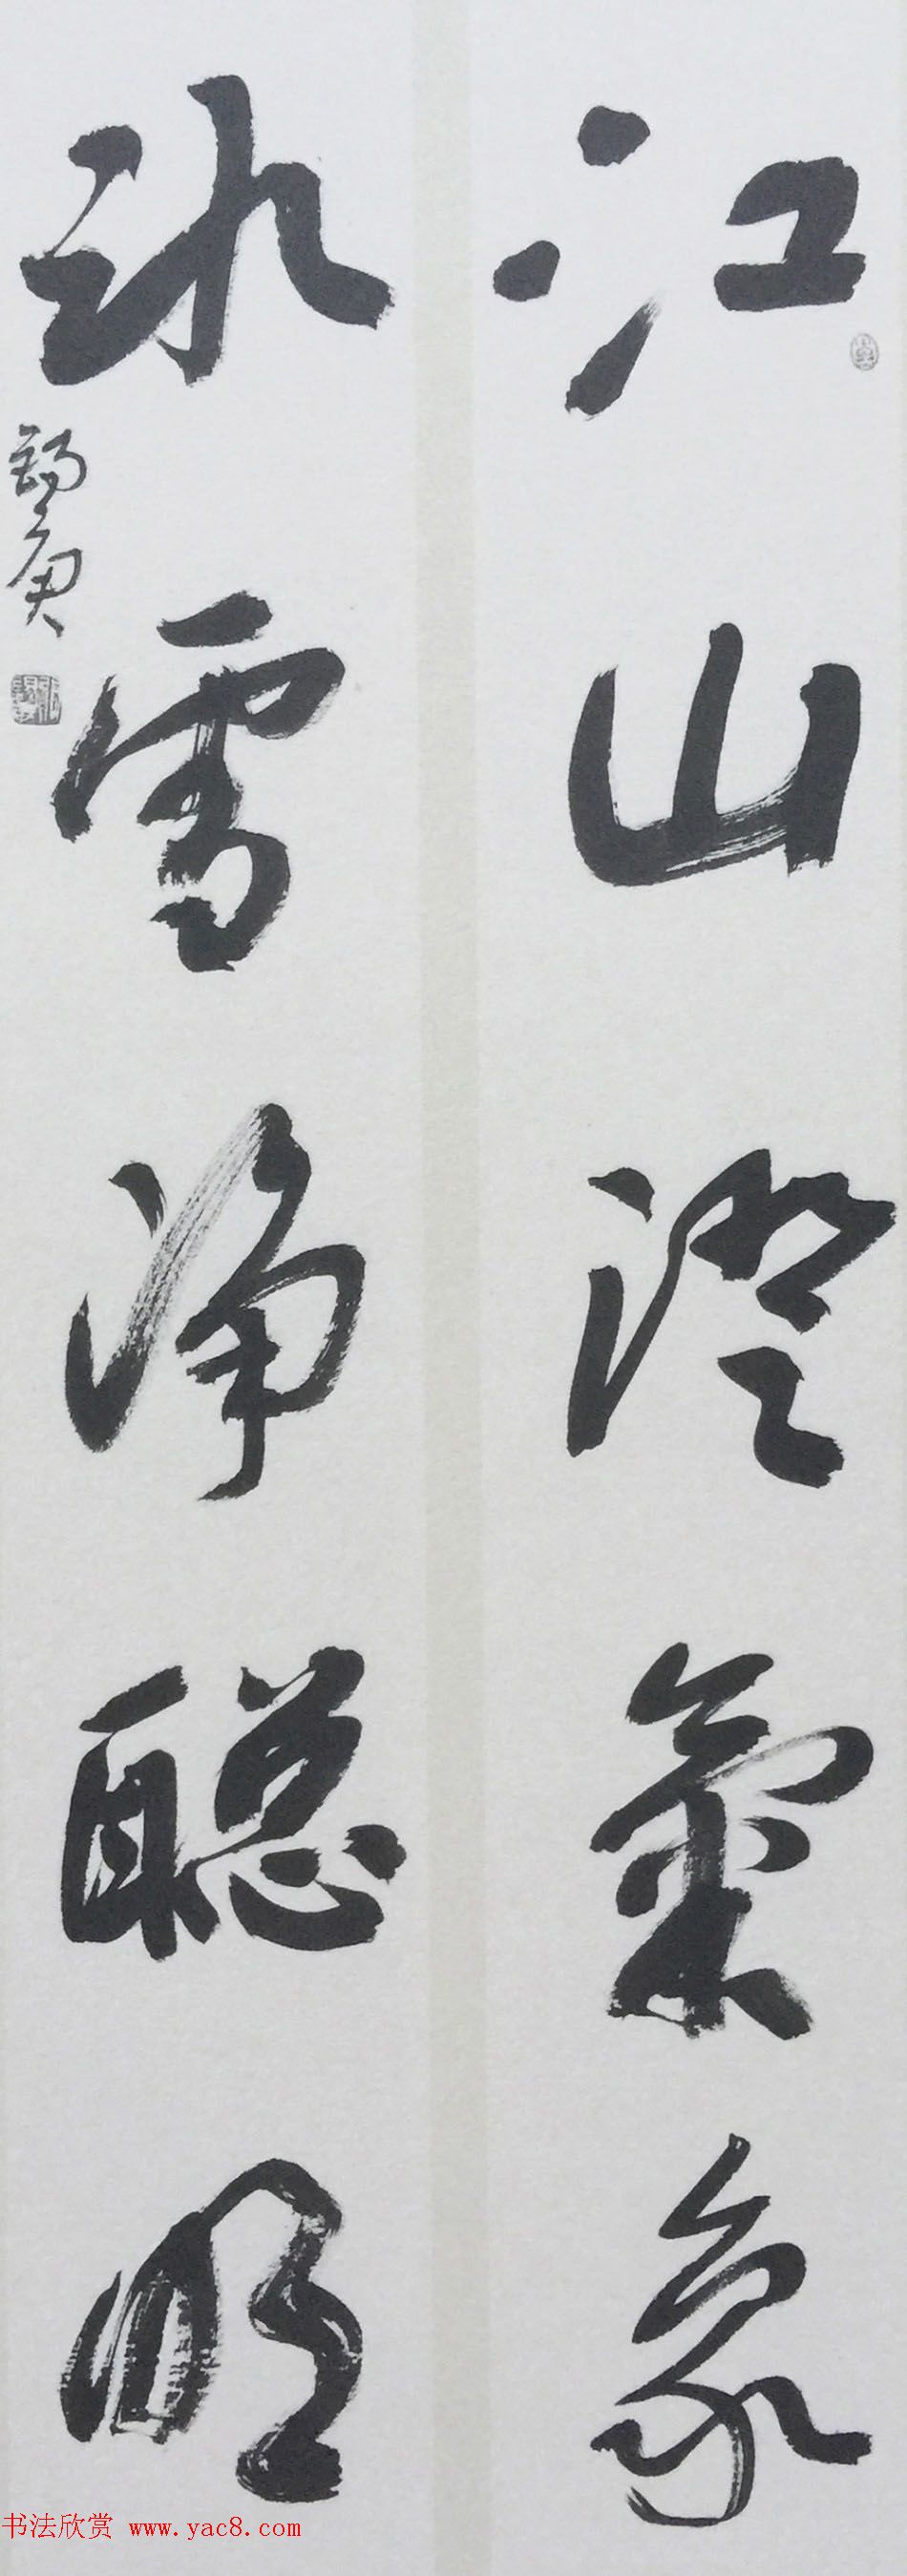 江山澄氣象
冰雪净聰明
錫庚
书法欣赏 www.yac8.com